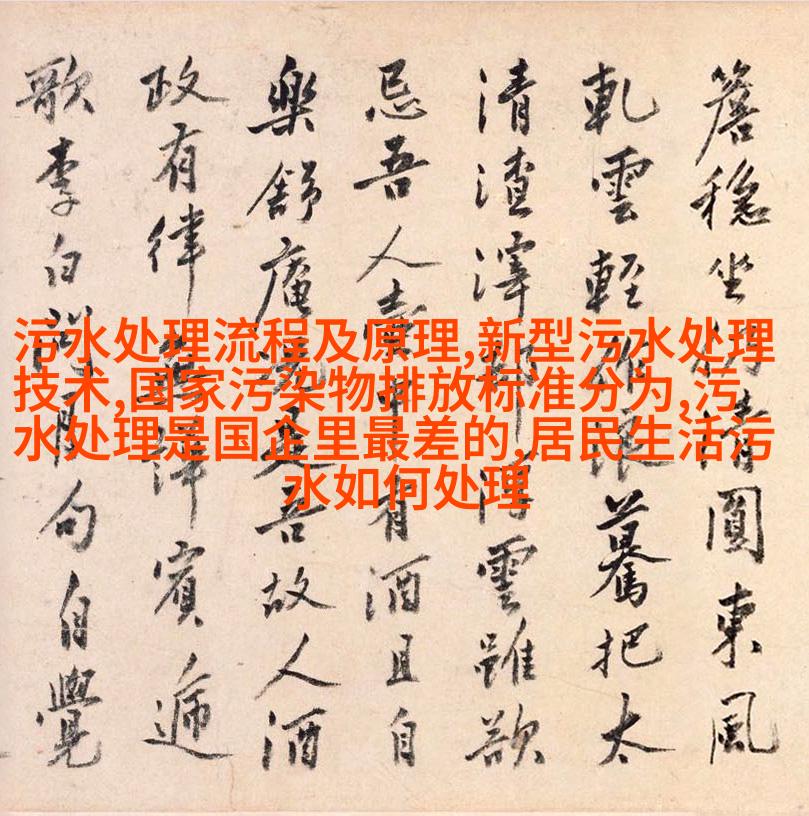 污水处理流程及原理,新型污水处理
技术,国家污染物排放标准分为,污
水处理是国企里最差的,居民生活污
水如何处理
簷穩坐請圓東風
軋雲輕驀把太
清渣滓雲雖欲
忌吾人有酒且自
樂舒庵是吾故人酒
政有律賓遞
歌李白句自覺